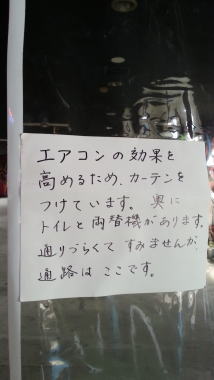 エアコンの効果を
高めるため、カーテンを
つけています。奥に
トイレと両替機があります。
通りづらくてすみませんが
通路はここです。